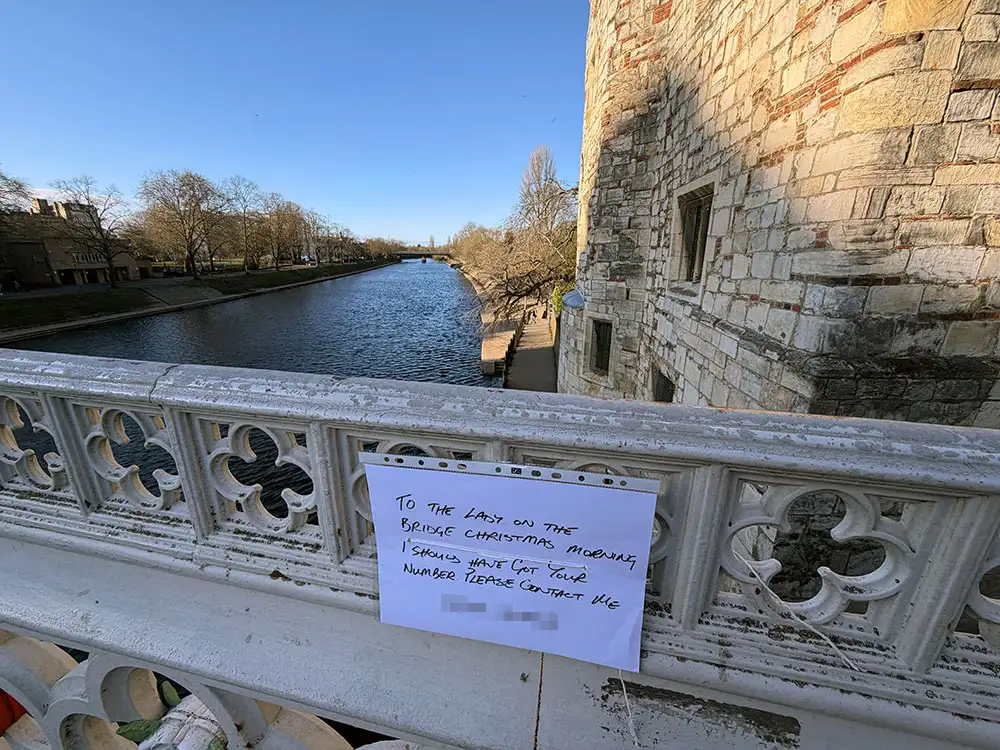 TO THE LADY ON THE
BRIDGE CHRISTMAS MORNING
I SHOULD HAVE GOT YOUR
NUMBER. PLEASE CONTACT ME